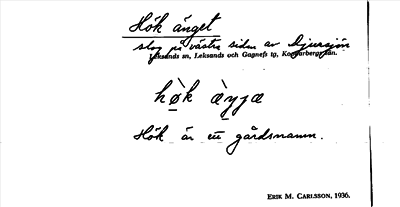 Hök änget
slog på västra sidan av Djursjön
Leksands sn, Leksands och Gagnefs tg, Kopparbergs län.
hø̀k æ̀yjæ
Hök är ett gårdsnamn.
ERIK M. CARLSSON, 1936.